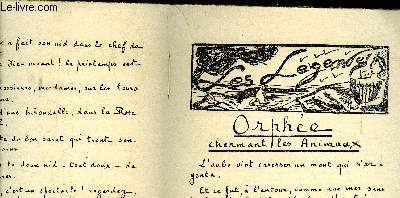 a fait son nid dans le chef de
Dieu vivant! le printemps est
messieurs, mesdames, sur les tours
d'une hirondelle, dans la Rose
te du bon saint qui tient son
doux nid - tout doux - de
c'est un spectacle! regardez
Les Légendes
Orphée
charmant les Animaux
L'aube vint caresser un mont qui s'ar-
genta.
Et ce fut, à l'entour, comme une mer sans